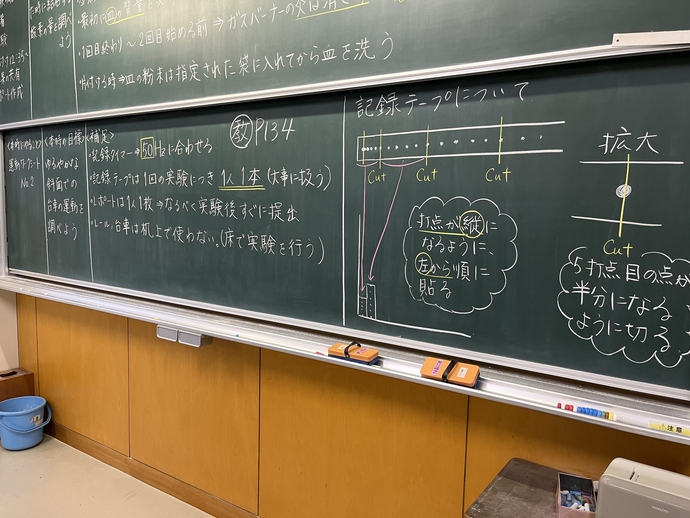 最初に皿の質量を
・1回目終わり〜2回目始める前⇒ガスバーナーの火は消
・片付ける時⇒皿の粉末は指定された袋に入れてから皿を洗う
教 P134
<本時にやること>
運動ワークシート
No.2
<本時の目標>
ゆるやかな
斜面での
台車の運動を
調べよう
<補足>
・記録タイマー⇒50Hzに合わせる
・記録テープは1回の実験につき1人1本(大事に扱う)
・レポートは1人1枚⇒なるべく実験後すぐに提出
・レール、台車は机上で使わない。(床で実験を行う)
記録テープについて
Cut
Cut
Cut
打点が縦に
なるように、
左から順に
貼る
拡大
Cut
5打点目の点が
半分になる
ように切る
注意